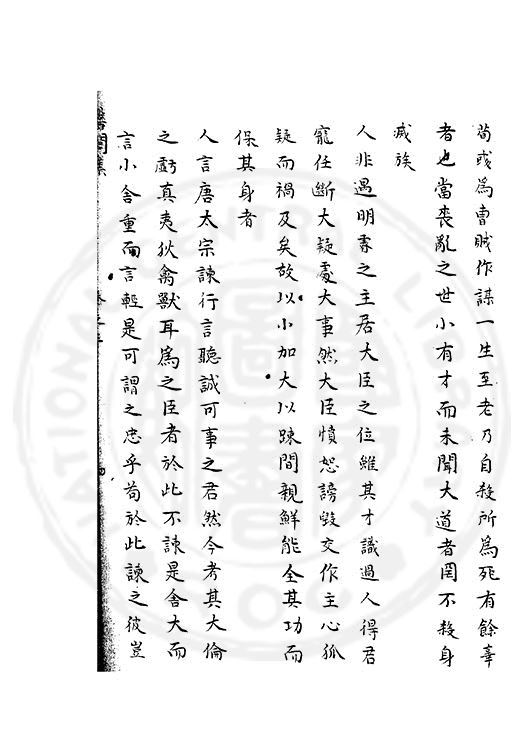 荀彧爲曹賊作謀一生至老乃自殺所爲死有餘辜
者也當喪亂之世小有才而未聞大道者罔不殺身
滅族
人非遇明豪之主居大臣之位雖其才識過人得君
寵任斷大疑處大事然大臣憤怨謗毀交作主心狐
疑而禍及矣故以小加大以踈間親鮮能全其功而
保其身者
人言唐太宗諫行言聽誠可事之君然今考其大倫
之虧真夷狄禽獸耳爲之臣者於此不諫是舍大而
言小舍重而言輕是可謂之忠乎苟於此諫之彼豈